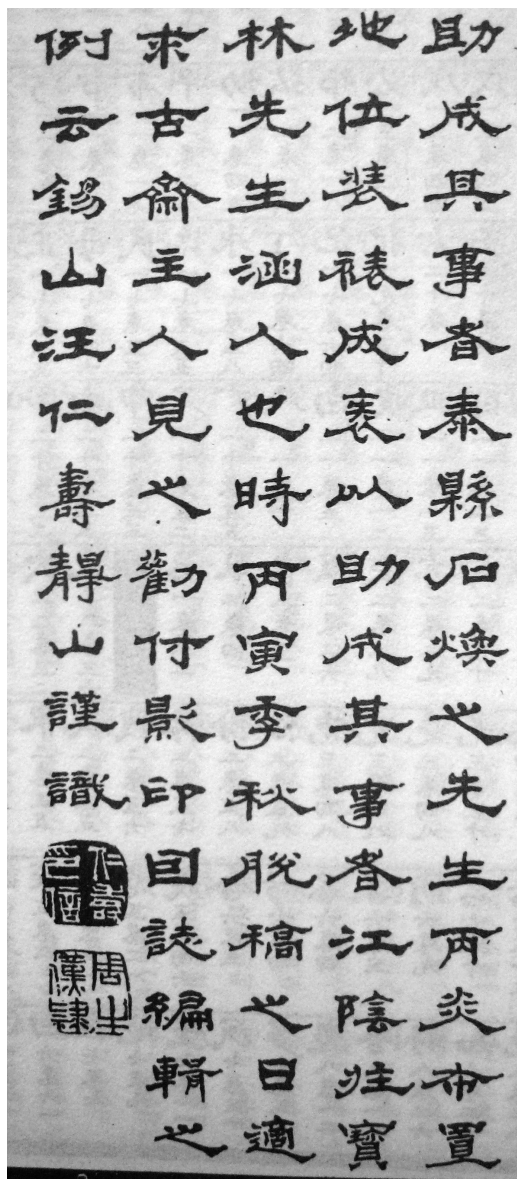 助成其事者泰縣石煥之先生丙炎布置
地位裝裱成袠以助成其事者江陰汪寶
林先生涵人也時丙寅季秋脫稿之日適
求古齋主人見之勸付影印回誌編輯之
例云錫山汪仁壽靜山謹識
仁壽之信